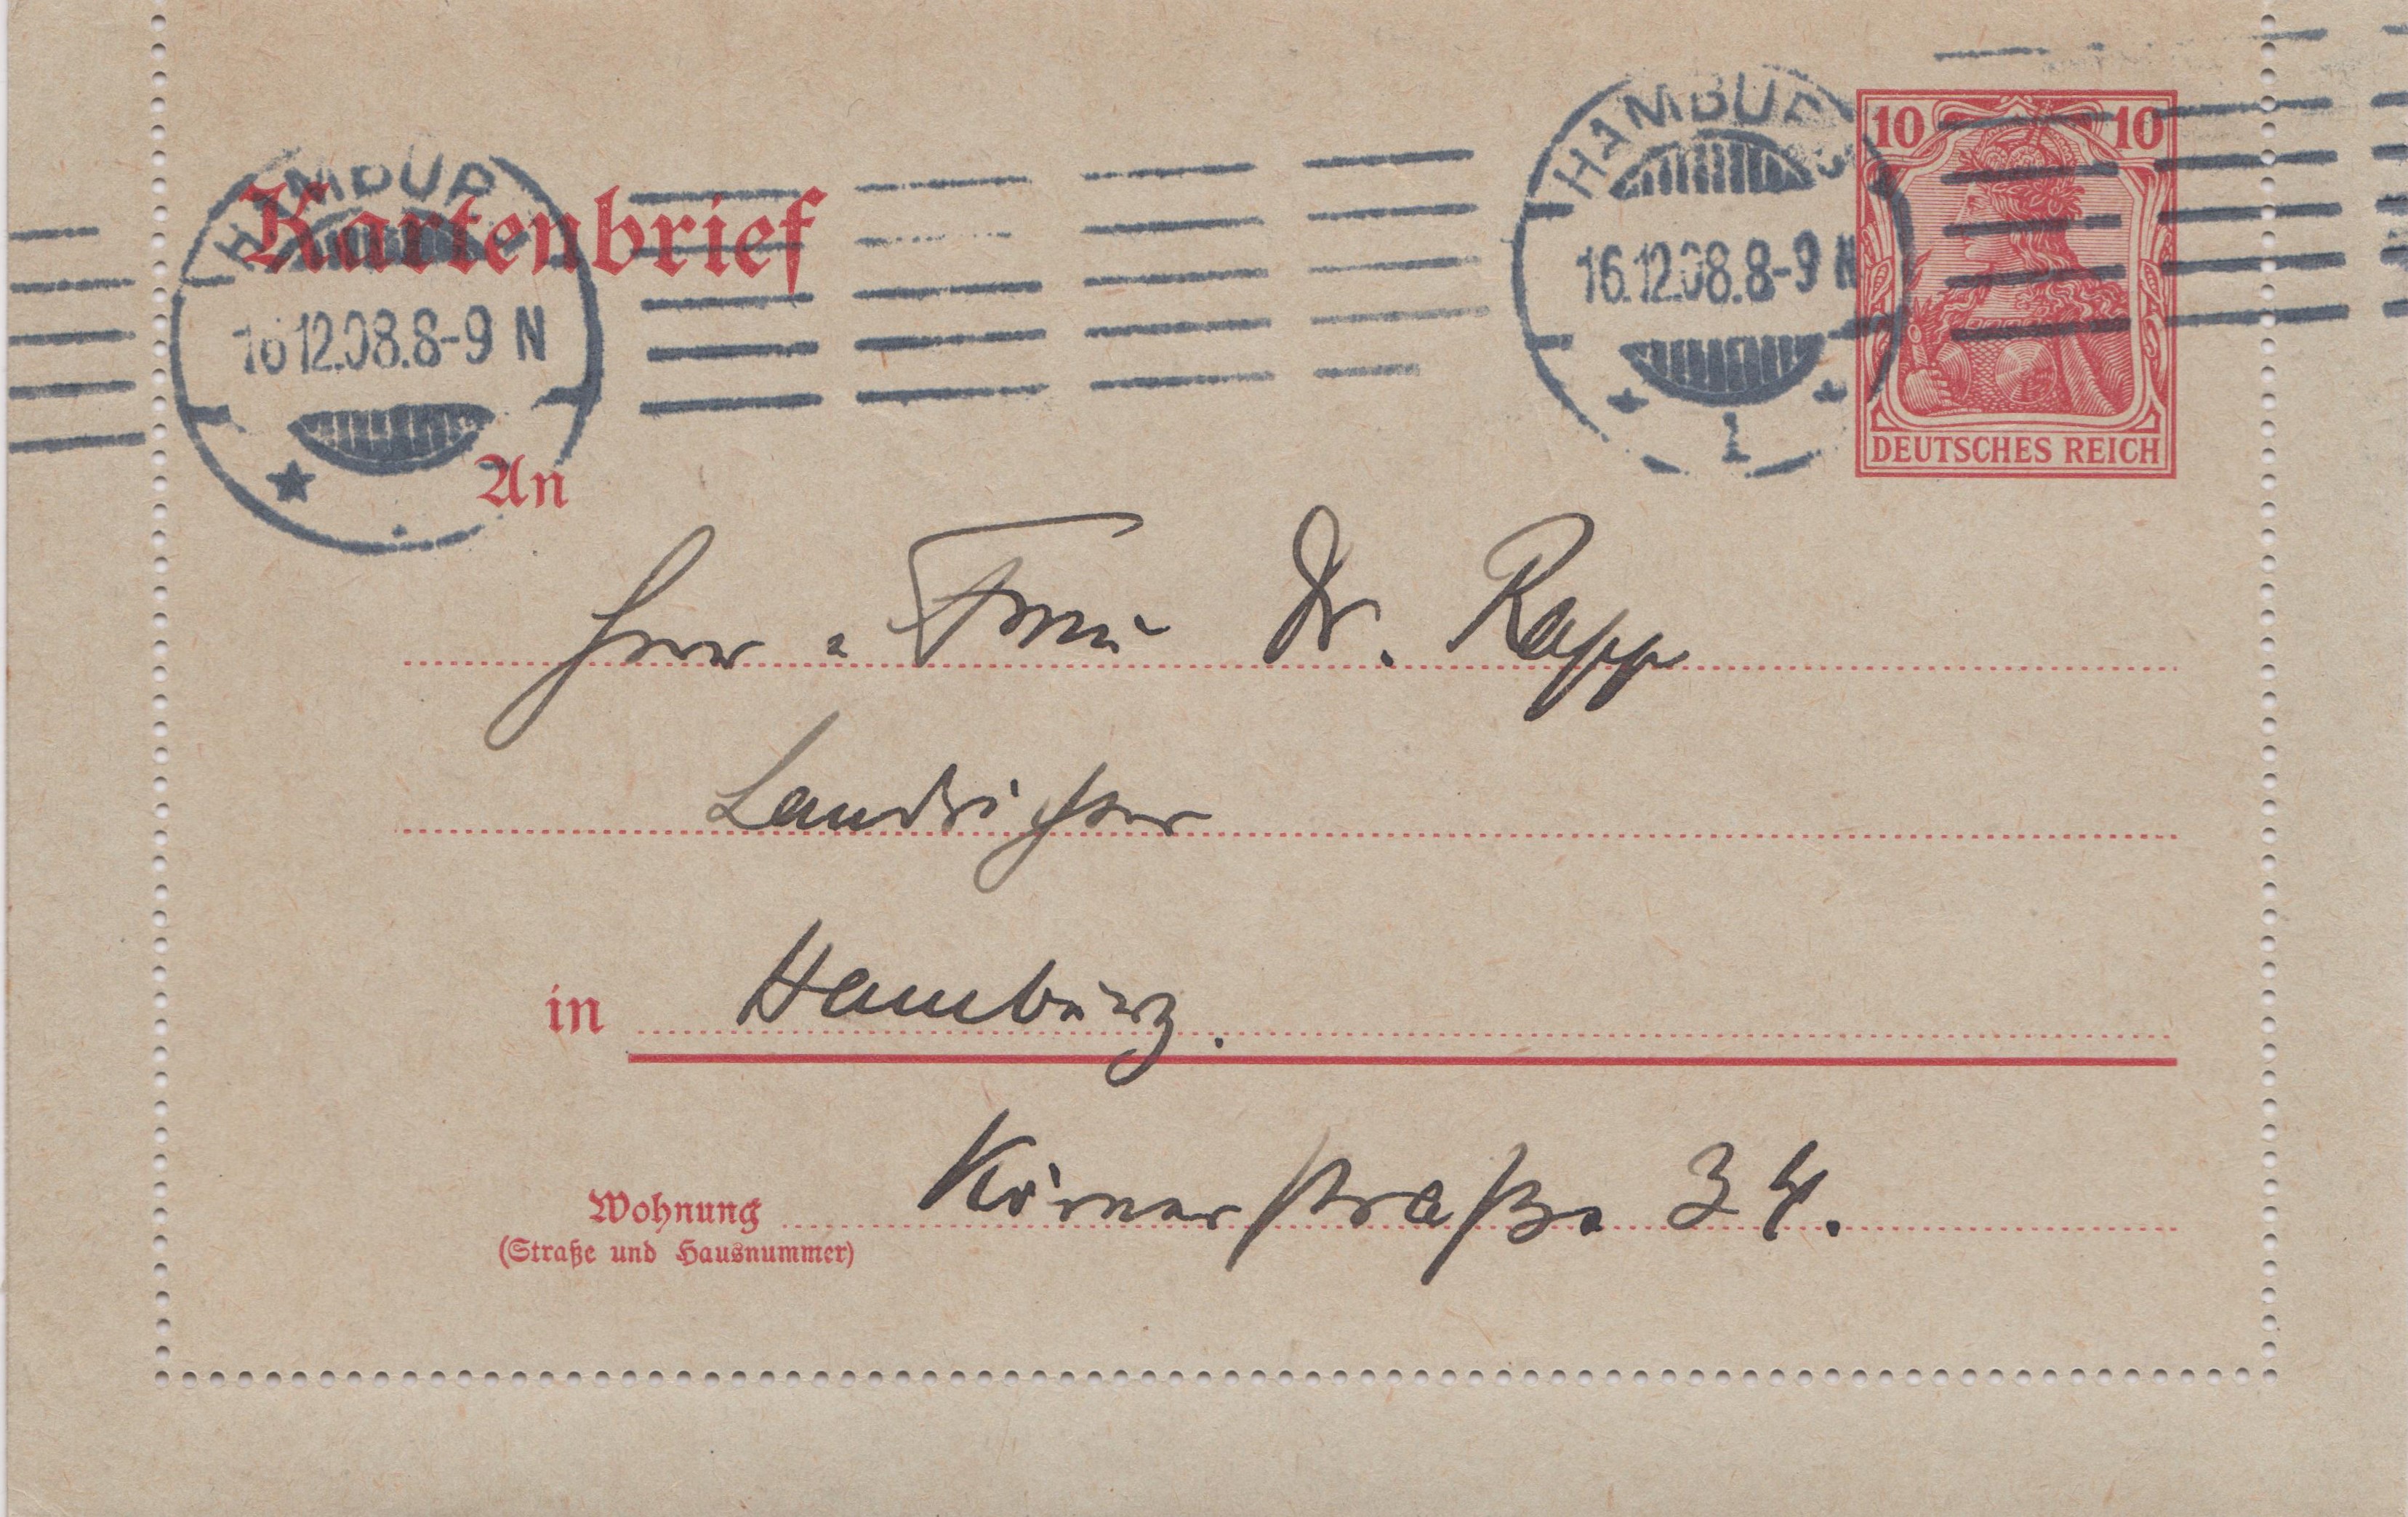 HAMBURG
16.12.08.8-9 N
* 1 *
10 10
DEUTSCHES REICH
HAMBUR
16.12.08.8-9 N
Kartenbrief
An
Herr u Frau Dr. Rapp
Landrichter
in Hamburg.
Wohnung Körnerstraße 34.
(Straße und Hausnummer)